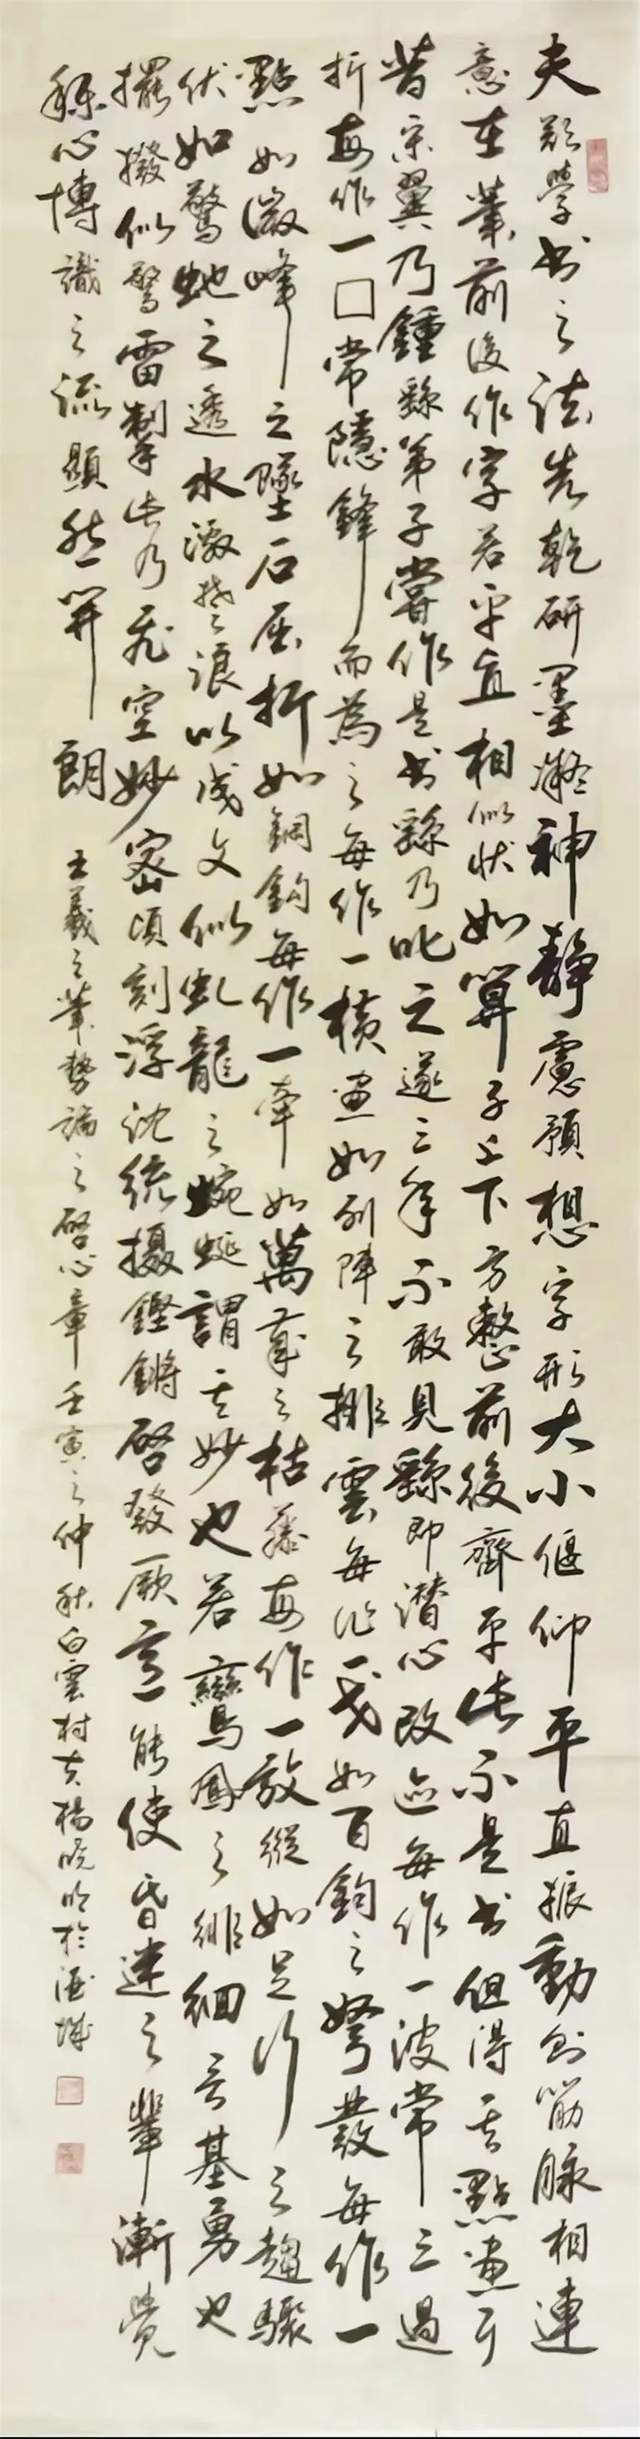 夫欲學書之法先乾研墨凝神靜慮預想字形大小偃仰平直振動則筋脉相連
意在筆前後作字若平直相似狀如算子上下方整前後齊平此不是書但得其點畫耳
昔宋翼乃鍾繇弟子嘗作是書繇乃叱之遂三年不敢見繇即潛心改迹每作一波常三過
折每作一□常隱鋒而為之每作一橫畫如列陣之排雲每作一戈如百鈞之弩發每作一
點如微峰之墜石屈折如鋼鈎每作一牽如萬歲之枯藤每作一放縱如足行之趨驟
伏如驚虵之透水激楚浪以成文似虬龍之蜿蜒謂其妙也若鸞鳳之徘徊言基勇也
擺撥似驚雷掣此乃飛空妙密頃刻浮沈統攝鏗鏘啓發厥意能使昏迷之輩漸覺
稱心博識之流顯然開朗
王羲之筆勢論之啓心章壬寅之仲秋白雲村夫楊曉明於酒城